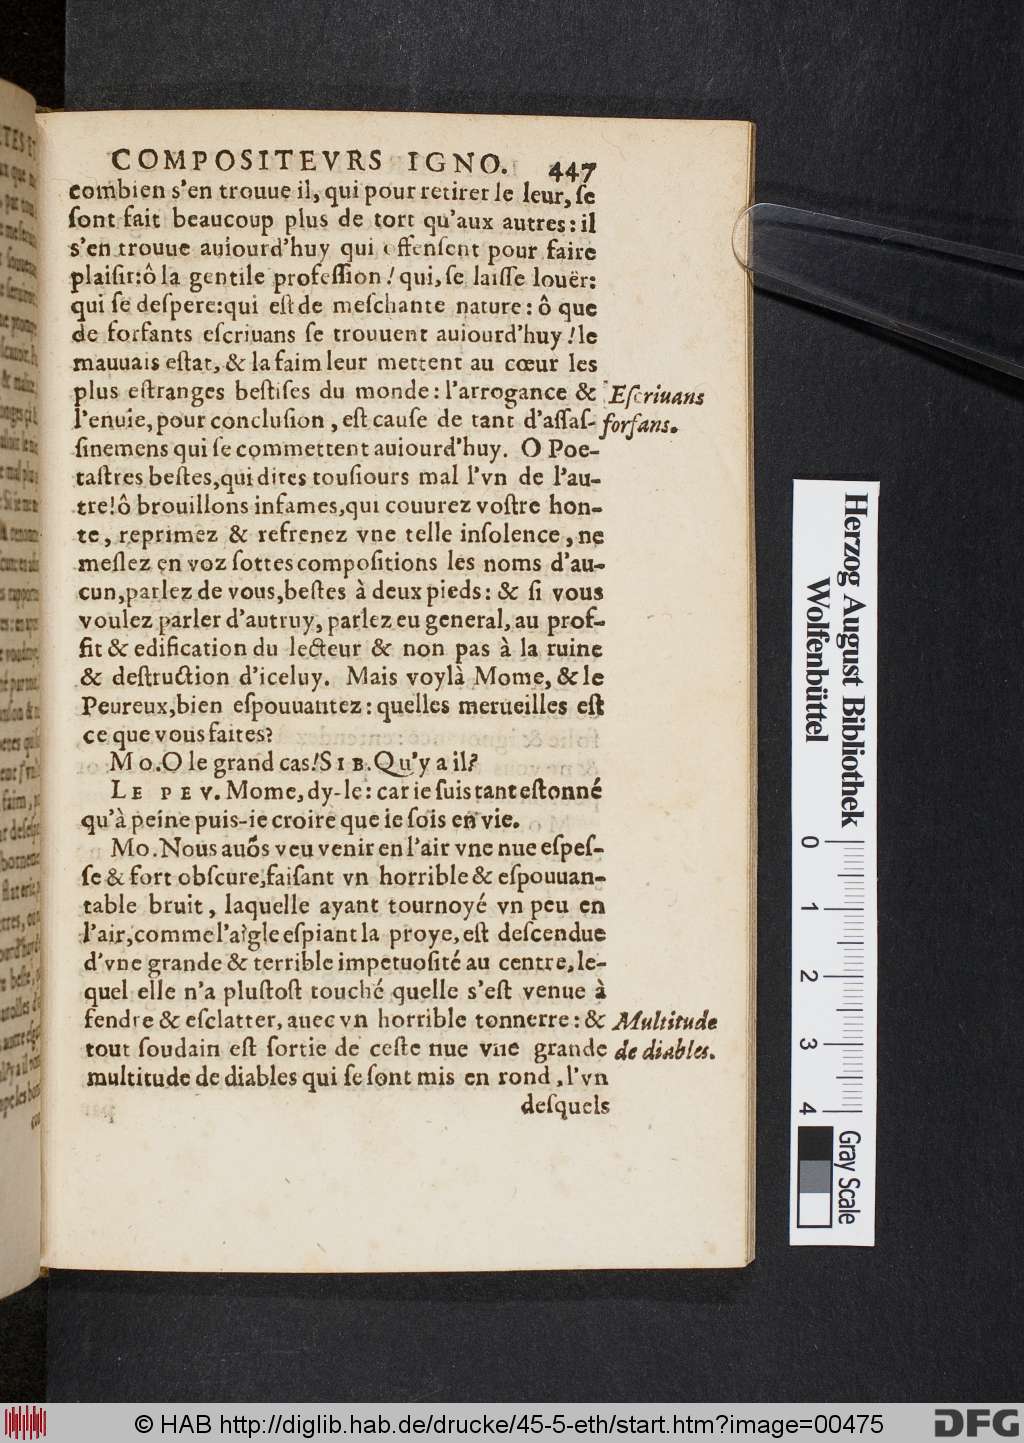 COMPOSITEVRS IGNO. 447
combien s'en trouue il, qui pour retirer le leur, ſe
ſont fait beaucoup plus de tort qu'aux autres: il
s'en trouue auiourd'huy qui offenſent pour faire
plaiſir: ô la gentile profeſſion! qui, ſe laiſſe louër:
qui ſe deſpere: qui eſt de meſchante nature: ô que
de forfants eſcriuans ſe trouuent auiourd'huy! le
mauuais eſtat, & la faim leur mettent au cœur les
plus eſtranges beſtiſes du monde: l'arrogance &
l'enuie, pour concluſion, eſt cauſe de tant d'aſſaſ-
ſinemens qui ſe commettent auiourd'huy. O Poe-
taſtres beſtes, qui dites touſiours mal l'vn de l'au-
tre! ô brouillons infames, qui couurez voſtre hon-
te, reprimez & refrenez vne telle inſolence, ne
meſlez en voz ſottes compoſitions les noms d'au-
cun, parlez de vous, beſtes à deux pieds: & ſi vous
voulez parler d'autruy, parlez eu general, au prof-
fit & edification du lecteur & non pas à la ruine
& deſtruction d'iceluy. Mais voylà Mome, & le
Peureux, bien eſpouuantez: quelles merueilles eſt
ce que vous faites?
Mo. O le grand cas! SIB. Qu'y a il?
LE PEV. Mome, dy-le: car ie ſuis tant eſtonné
qu'à peine puis-ie croire que ie ſois en vie.
Mo. Nous auõs veu venir en l'air vne nue eſpeſ-
ſe & fort obſcure, faiſant vn horrible & eſpouuan-
table bruit, laquelle ayant tournoyé vn peu en
l'air, comme l'aigle eſpiant la proye, eſt deſcendue
d'vne grande & terrible impetuoſité au centre, le-
quel elle n'a pluſtoſt touché quelle s'eſt venue à
fendre & eſclatter, auec vn horrible tonnerre: &
tout ſoudain eſt ſortie de ceſte nue vne grande
multitude de diables qui ſe ſont mis en rond, l'vn
deſquels
Eſcriuans
forfans.
Multitude
de diables.
Herzog August Bibliothek
Wolfenbüttel
0 1 2 3 4
Gray Scale
© HAB http://diglib.hab.de/drucke/45-5-eth/start.htm?image=00475
DFG